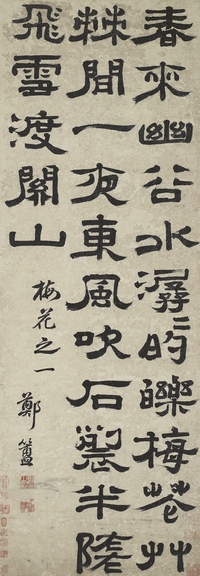 春來幽谷水潺〻的皪梅花艸
棘間一夜東風吹石裂半隨
飛雪渡關山
梅花之一 鄭簠